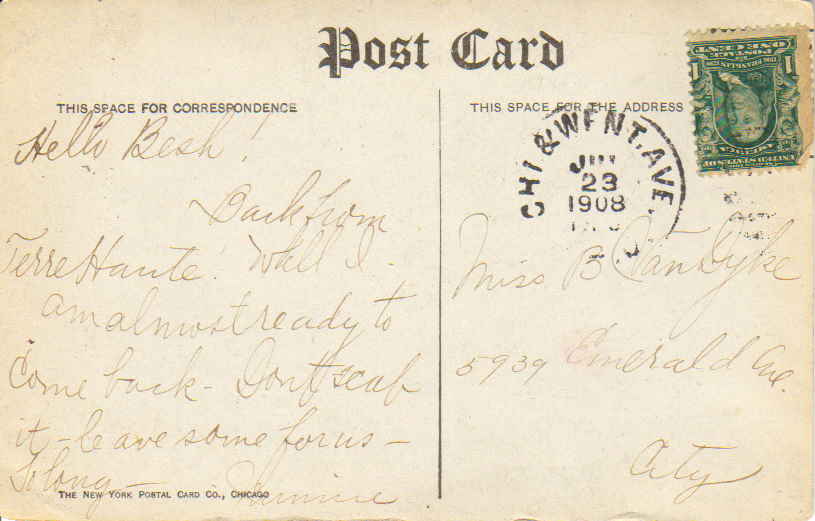 Post Card
THIS SPACE FOR CORRESPONDENCE
Hello Besh!
Back from
Terre Haute. Well I
am almost ready to
Come back - Dont scab
it - leave some for us -
So long -
THE NEW YORK POSTAL CARD CO., CHICAGO
THIS SPACE FOR THE ADDRESS
CHI & WENT. AVE.
23
1908
POSTAGE
ONE CENT
1 1
Miss B Van Dyke
5939 Emerald Ave.
City